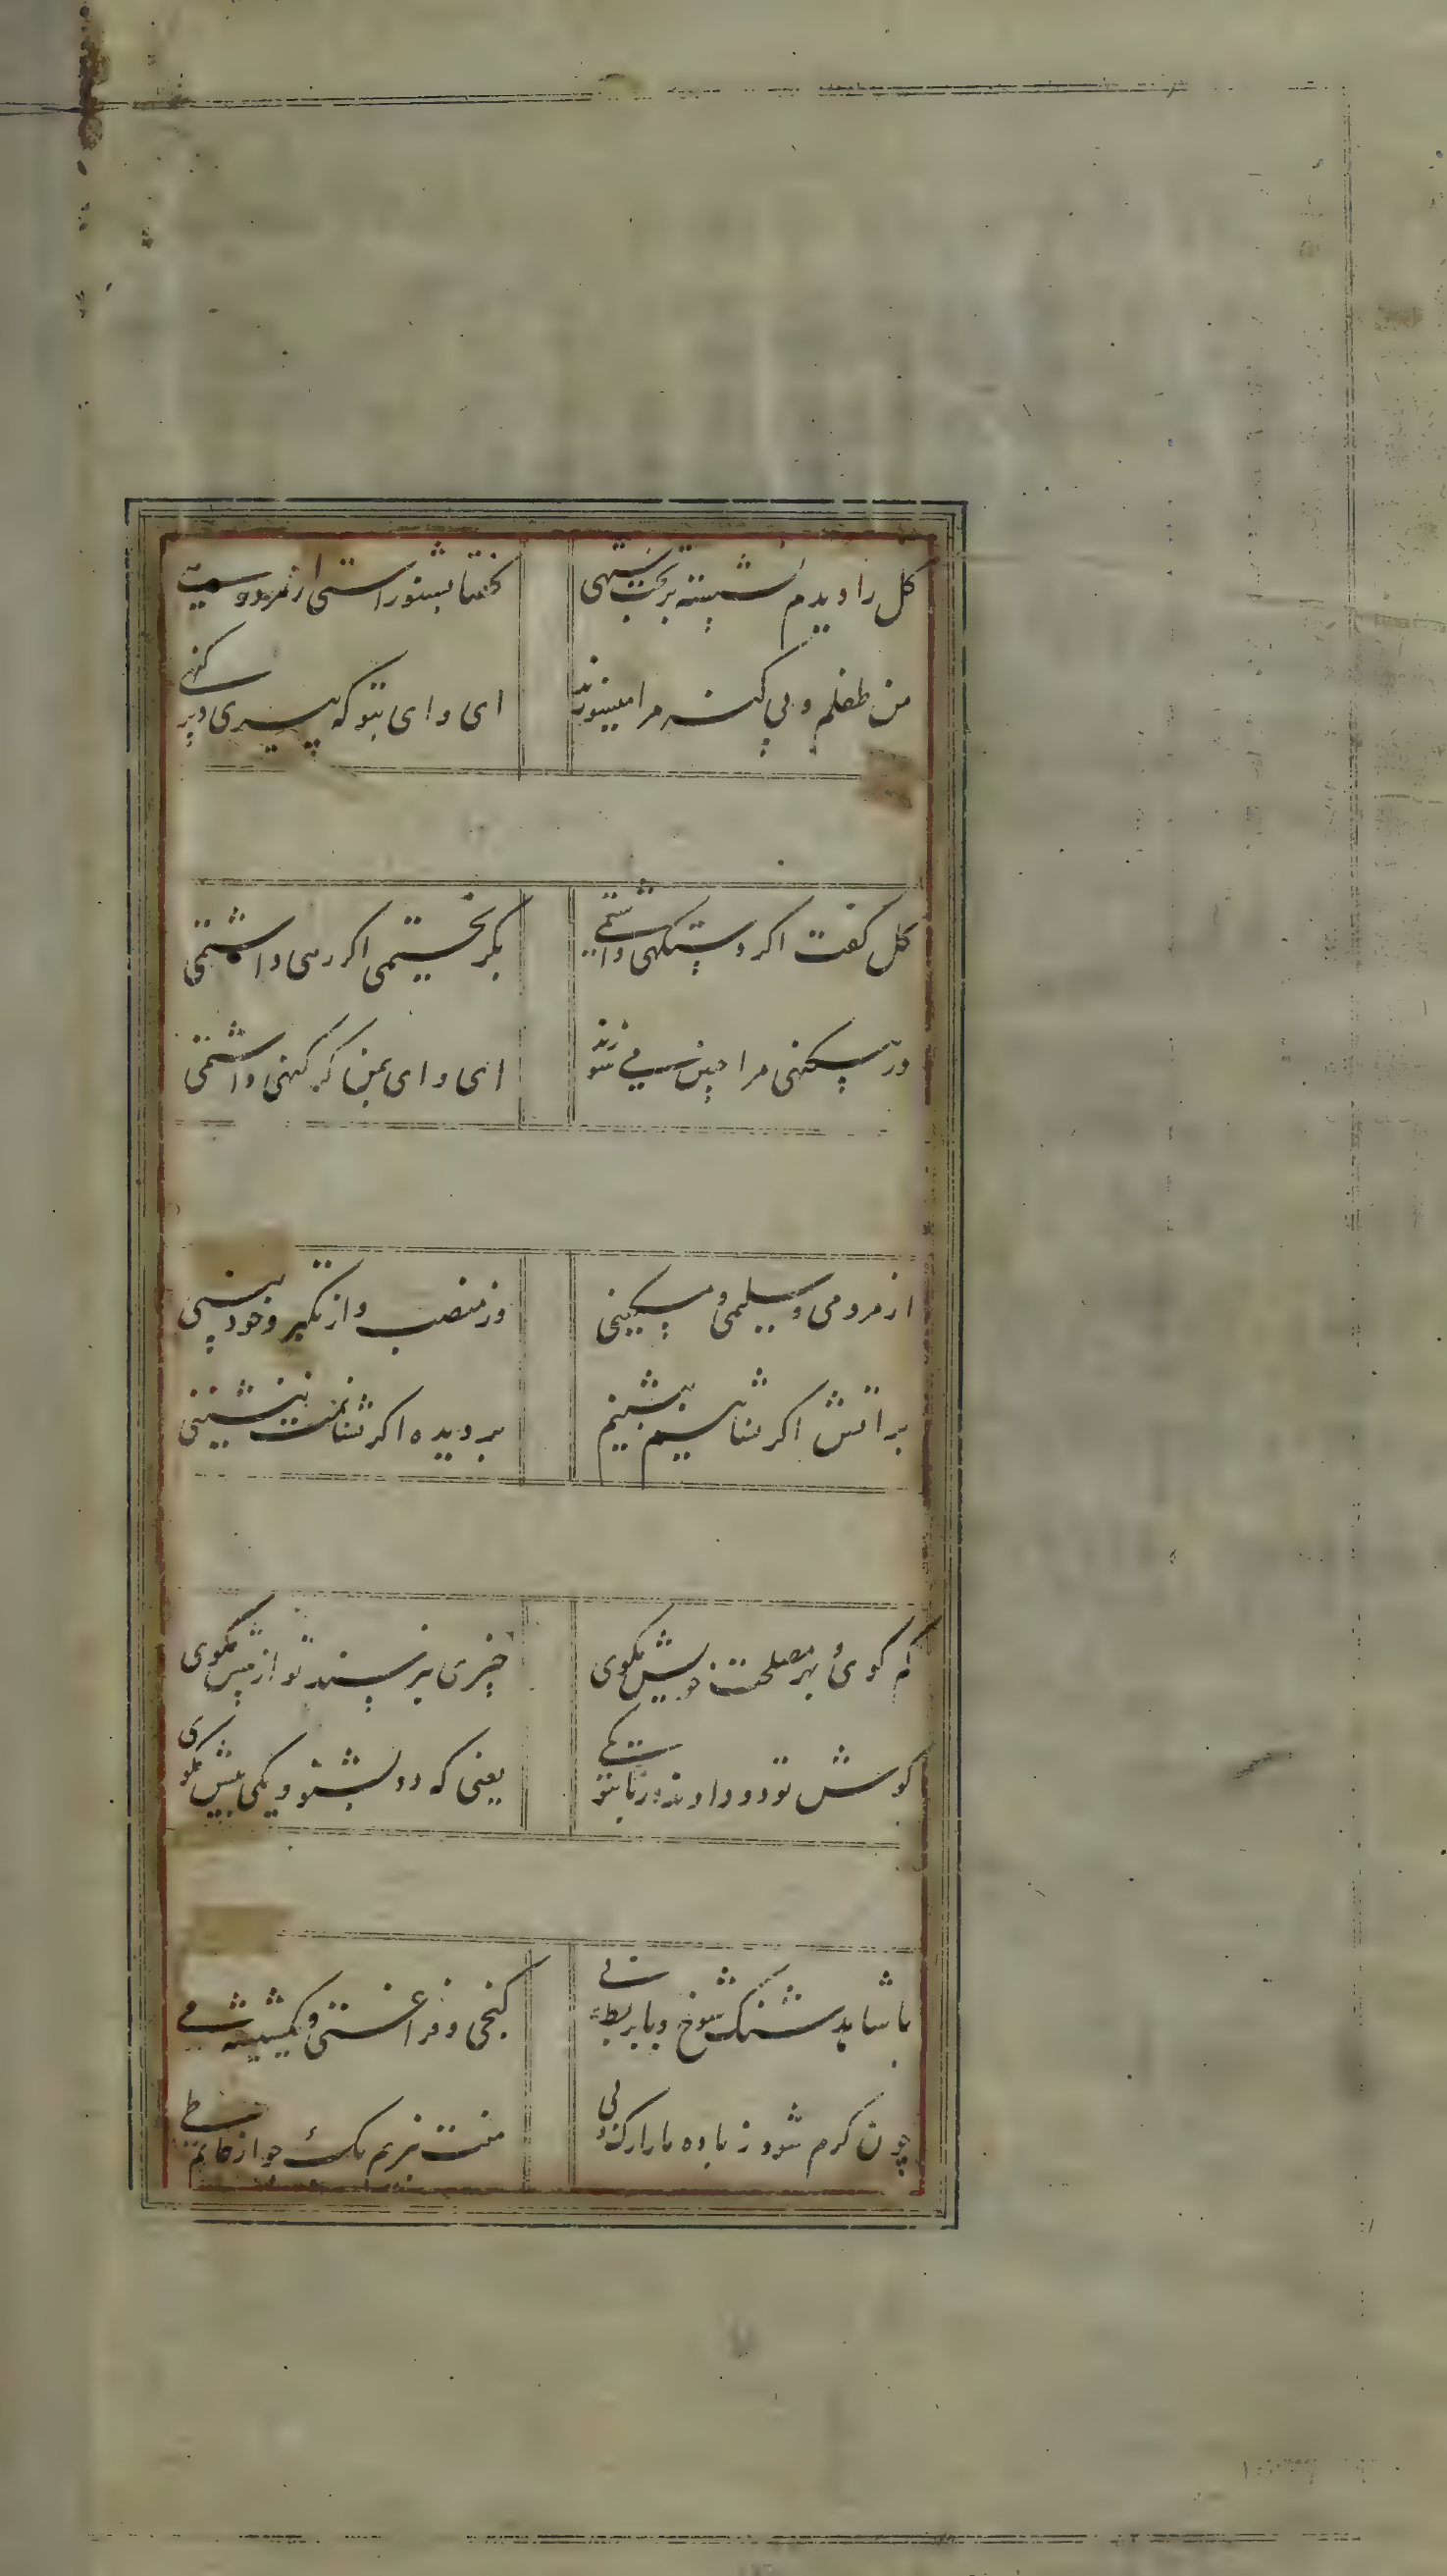 کل را دیدم نشسته بر تخت شهی کفتا بشنو راستی از
من طفلم و بی کنه مرا میسوزند ای وای بتو که پیری و پر کنهی
کل کفت اکر دستکهی داشتمی بکریختمی اکر رهی داشتمی
در بیکنهی مرا چنین می سوزند ای وای بمن کر کنهی داشتمی
از مردمی و سلیمی و مسکینی وز منصب و از تکبر و خود بینی
بر اتش اکر نشانیم بنشینم بر دیده اکر نشانمت ننشینی
کم کوئ بهر مصلحت خویش مکوی چیزی نپرسند تو از پیش مکوی
کوش تو دو دادند و زبان تو یکی یعنی که دو بشنو و یکی بیش مکوی
با شاهد شنک شوخ و با بربط و نی کنجی و فراغتی و یک شیشه می
چون کرم شود ز باده ما را رک و پی منت نبرم یک جو از حاتم طی